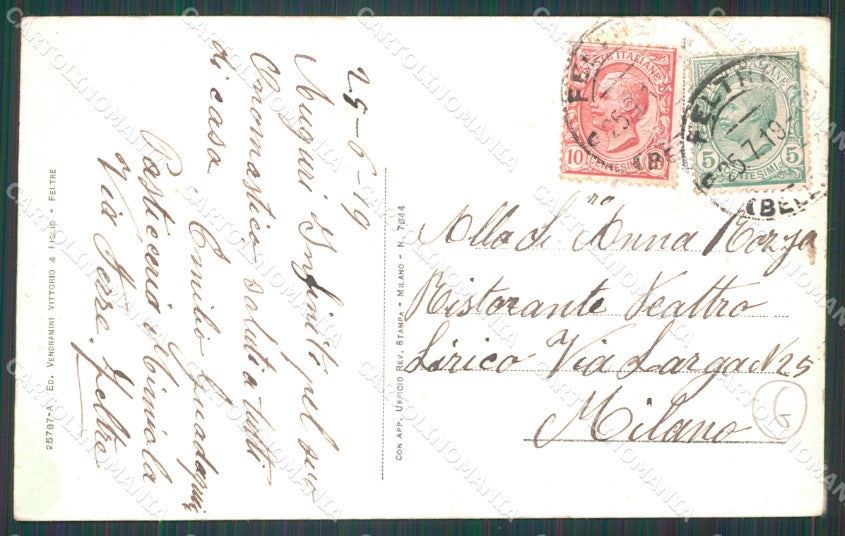 25-6-19
Auguri Infiniti pel suo
Onomastico saluti a tutti
di casa
Emilio Guadagnin
Pasticceria
Via Tezze. Feltre
25787-A - ED. VENDRAMINI VITTORIO & FIGLIO - FELTRE
CON APP. UFFICIO REV. STAMPA - MILANO - N. 7844
10
CENTESIMI
FELTRE
5
CENTESIMI
FELTRE
25.7.19
(BELL
Alla S.na Anna Rozza
Ristorante Teattro
Lirico Via Larga N 5
Milano
5
CARTOLINOMANIA